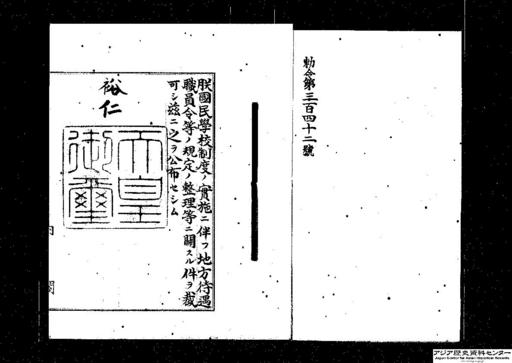 勅令第三百四十二號
朕國民學校制度ノ實施ニ伴フ地方待遇
職員令等ノ規定ノ整理等ニ關スル件ヲ裁
可シ茲ニ之ヲ公布セシム
裕仁
天皇御璽
内閣
アジア歴史資料センター
Japan Center for Asian Historical Records